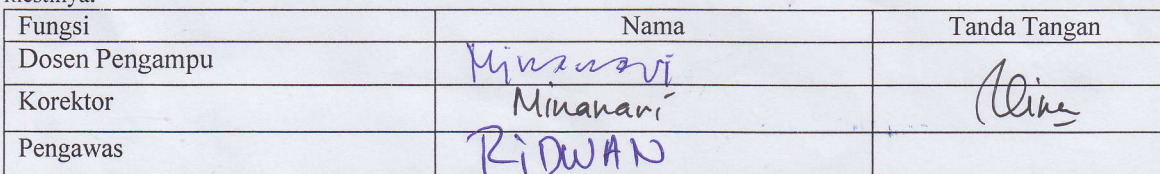 Fungsi Nama Tanda Tangan
Dosen Pengampu Minanari
Korektor Minanari
Pengawas RiDWAN